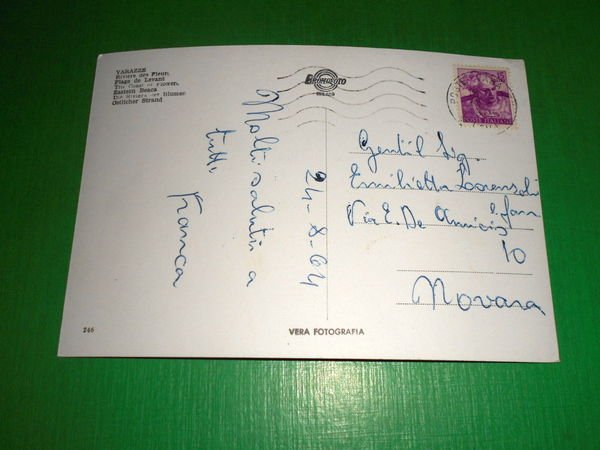 VARAZZE
Riviera des Fleurs
Plage de Levant
The Coast of Flowers
Eastern Beach
Die Riviera der Blumen
Östlicher Strand
Molti saluti a
tutti
Franca
24-8-64
POSTE ITALIANE
Gentil Sig.
Emilietta Lorenzoli
e fam
Via E. De Amicis
10
Novara
246
VERA FOTOGRAFIA